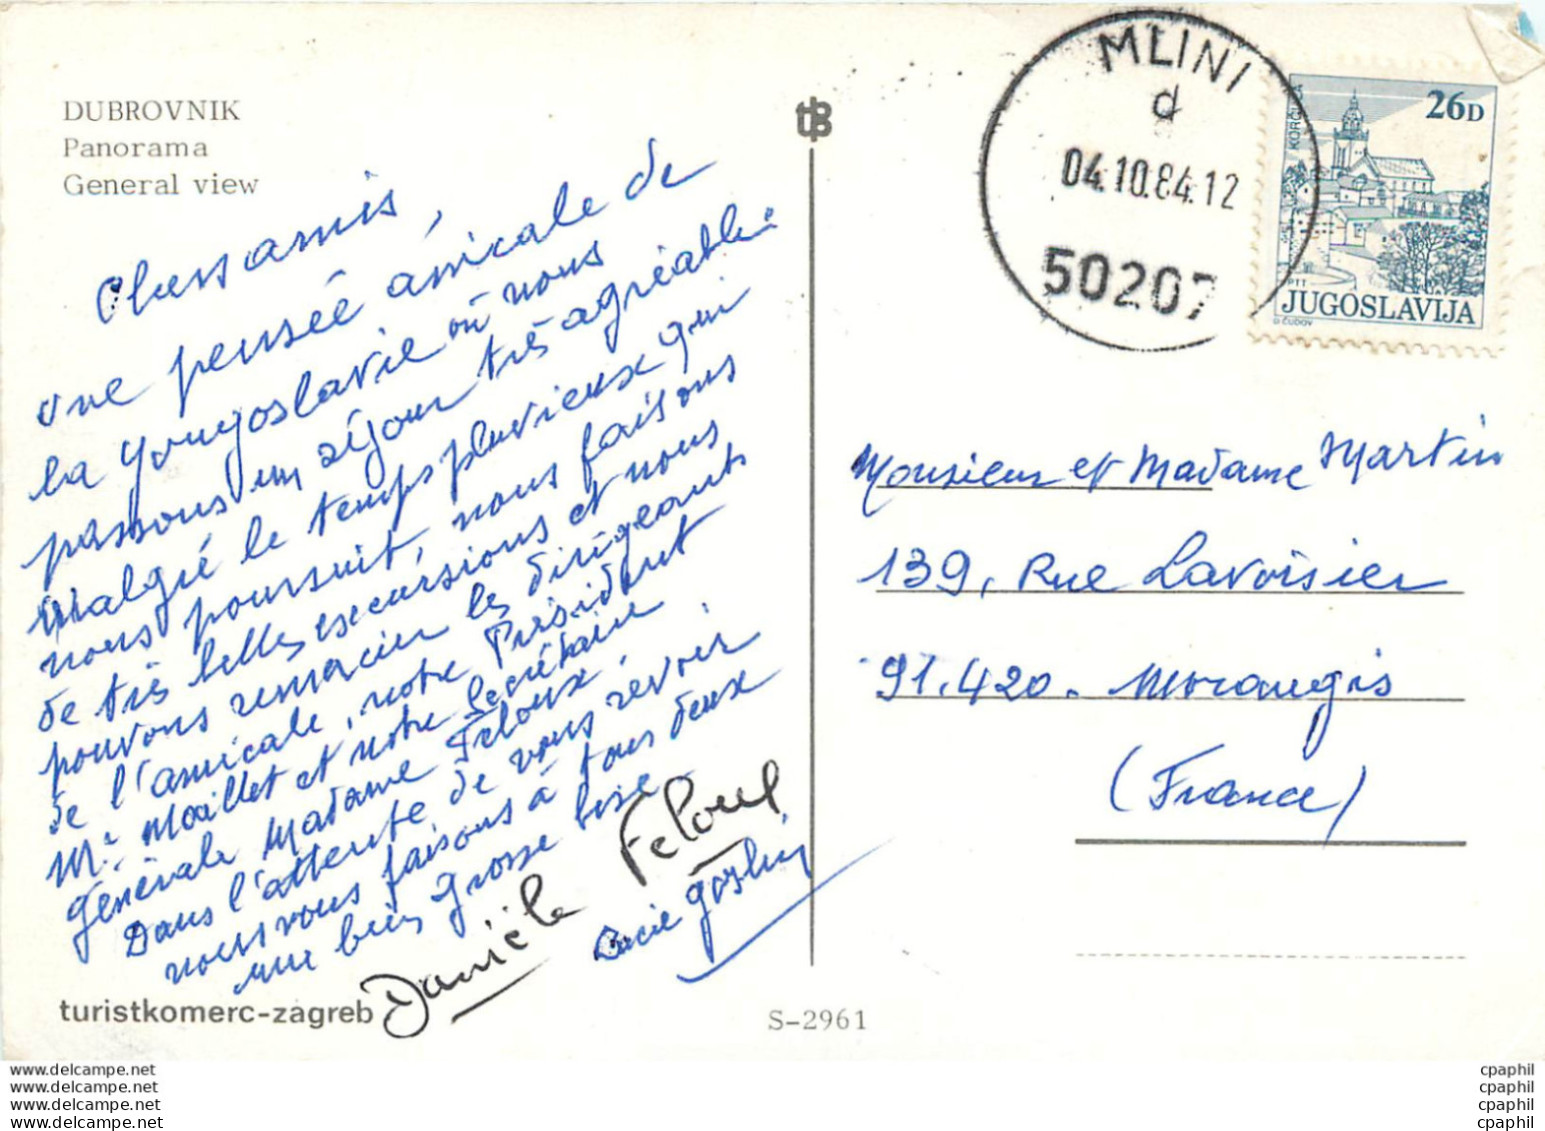 DUBROVNIK
Panorama
General view
Chers amis,
une pensée amicale de
la Yougoslavie où nous
passons un séjour très agréable
Malgré le temps pluvieux qui
nous poursuit, nous faisons
de très belles excursions et nous
pouvons remercier les dirigeants
de l'amicale, notre Président
Mr. Maillet et notre Secrétaire
générale Madame Feloux.
Dans l'attente de vous revoir
nous vous faisons à tous deux
une bien grosse bise.
Danièle Feloux
Lucie Goslin
turistkomerc-zagreb
S-2961
MLINI
d
04.10.84.12
50207
KORČULA
26D
PTT
JUGOSLAVIJA
D. ČUDOV
Monsieur et Madame Martin
139, Rue Lavoisier
91.420. Morangis
(France)
www.delcampe.net
www.delcampe.net
www.delcampe.net
www.delcampe.net
cpaphil
cpaphil
cpaphil
cpaphil